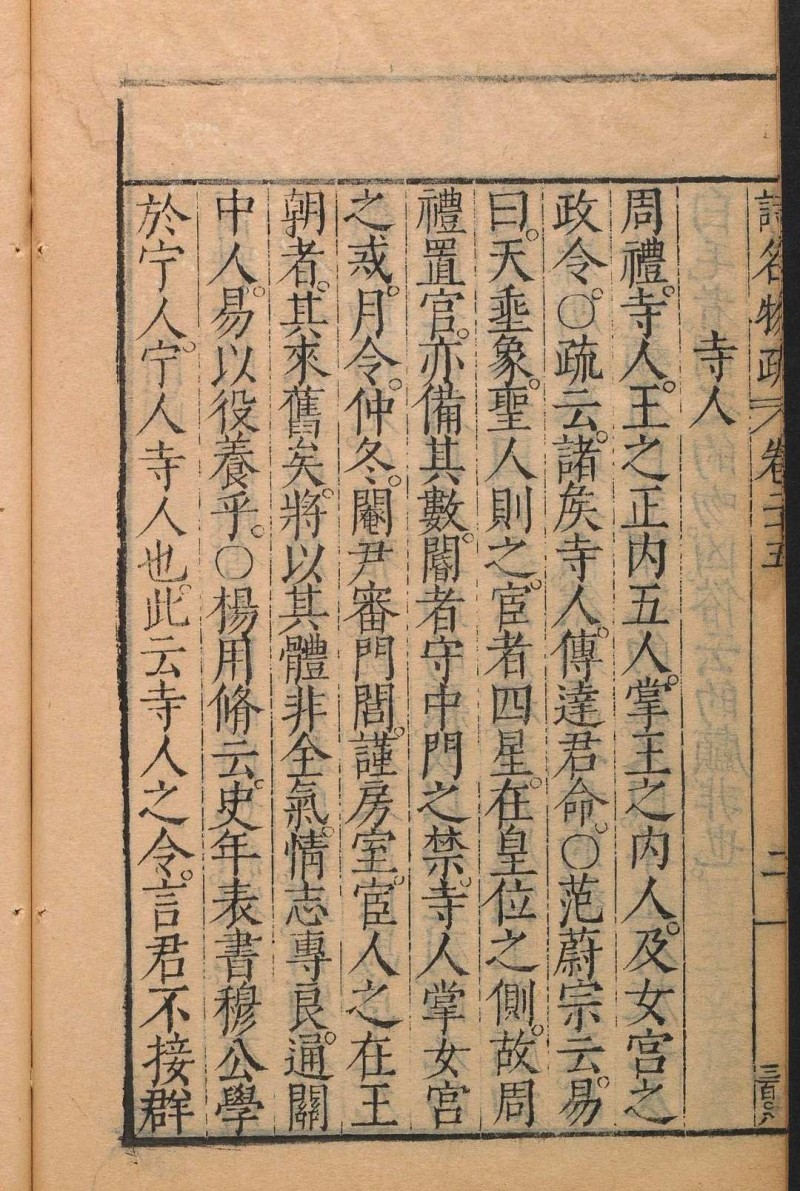 詩名物疏 卷二十五 二
寺人
周禮。寺人。王之正内五人。掌王之内人。及女宫之
政令。○疏云。諸矦寺人。傳達君命。○范蔚宗云。易
曰。天垂象。聖人則之。宦者四星。在皇位之側。故周
禮置官。亦備其數。閽者守中門之禁。寺人掌女宮
之戒。月令。仲冬。閹尹審門閭。謹房室。宦人之在王
朝者。其來舊矣。將以其體非全氣。情志專良。通關
中人。易以役養乎。○楊用脩云。史年表書穆公學
於宁人。宁人寺人也。此云寺人之令。言君不接群